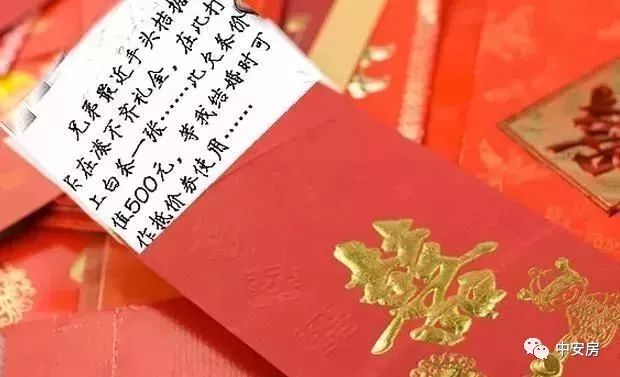 兄弟最近手头拮据
实在凑不齐礼金，在此打
上白条一张……此欠条价
值500元，等我结婚时可
作抵价券使用……
中安房